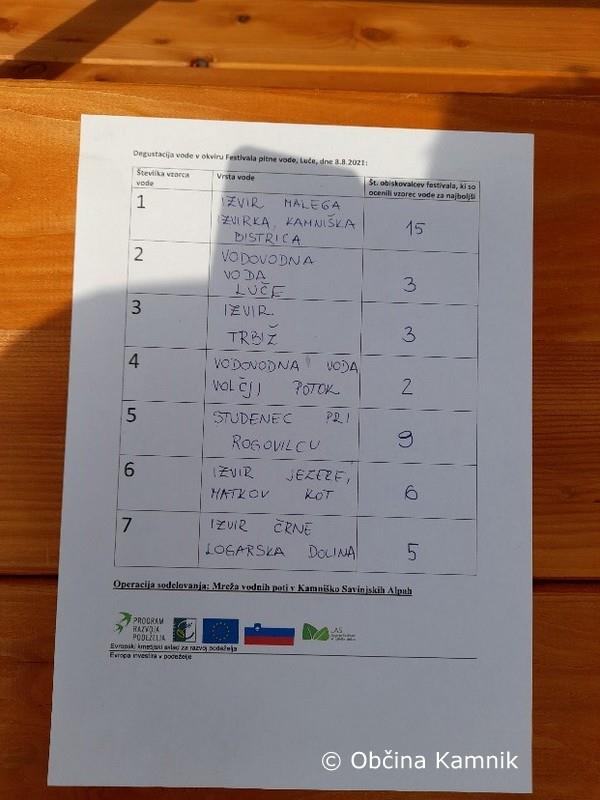 Degustacija vode v okviru Festivala pitne vode, Luče, dne 8.8.2021:
Številka vzorca vode
Vrsta vode
Št. obiskovalcev festivala, ki so ocenili vzorec vode za najboljši
1
IZVIR MALEGA
IZVIRKA, KAMNIŠKA
BISTRICA
15
2
VODOVODNA
VODA
LUČE
3
3
IZVIR
TRBIŽ
3
4
VODOVODNA VODA
VOLČJI POTOK
2
5
STUDENEC PRI
ROGOVILCU
9
6
IZVIR JEZERE,
MATKOV KOT
6
7
IZVIR ČRNE
LOGARSKA DOLINA
5
Operacija sodelovanja: Mreža vodnih poti v Kamniško Savinjskih Alpah
PROGRAM
RAZVOJA
PODEŽELJA
LAS
Evropski kmetijski sklad za razvoj podeželja
Evropa investira v podeželje
© Občina Kamnik